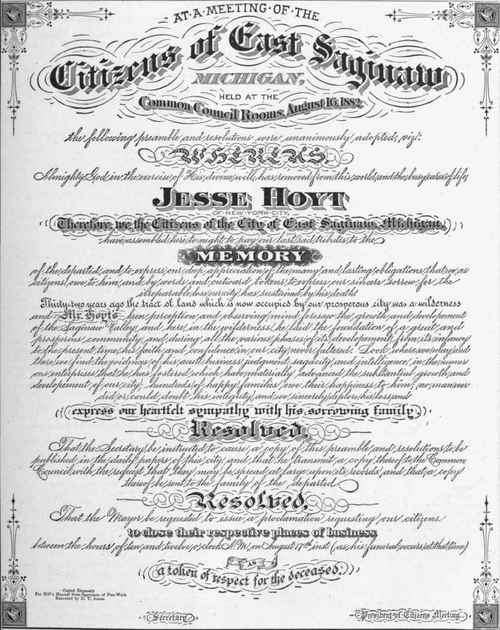 AT A MEETING OF THE
Citizens of East Saginaw
MICHIGAN,
HELD AT THE
Common Council Rooms, August 16, 1882
the following preamble and resolutions were unanimously adopted, viz:
WHEREAS
Almighty God, in the exercise of His divine will, has removed from this world, and the busy cares of life,
JESSE HOYT
OF NEW-YORK-CITY,
Therefore, we the Citizens of the City of East Saginaw, Michigan,
have assembled here to-night to pay our last sad tributes to the
MEMORY
of the departed, and to express our deep appreciation of the many and lasting obligations that we, as
citizens, owe to him, and by words and outward tokens to express our sincere sorrow for the
irreparable loss our city has sustained by his death
Thirty-two years ago the tract of land which is now occupied by our prosperous city was a wilderness
and Mr. Hoyt's keen perception and observing mind foresaw the growth and development
of the Saginaw Valley, and here, in the wilderness, he laid the foundation of a great and
prosperous community, and during all the various phases of its development from its infancy
to the present time, his faith and confidence in our city never faltered. Look where we may, and
this we find the evidence of his wealth, business judgment, sagacity and intelligence, in the numer-
ous enterprises that he has fostered, which have materially advanced the substantial growth and
development of our city, hundreds of happy families owe their happiness to him, no man ever
did or could doubt his integrity, and we sincerely deplore his loss, and
express our heartfelt sympathy with his sorrowing family.
Resolved,
That the Secretary be instructed to cause a copy of this preamble and resolutions to be
published in the daily papers of this city, and that he transmit a copy thereof to the Common
Council, with the request that they may be spread at large upon its records, and that a copy
thereof be sent to the family of the departed
Resolved,
That the Mayor be requested to issue a proclamation requesting our citizens
to close their respective places of business
between the hours of ten and twelve o'clock A.M. on August 17th inst. (as his funeral occurs at that time)
AS
a token of respect for the deceased.
Secretary
President of Citizens Meeting